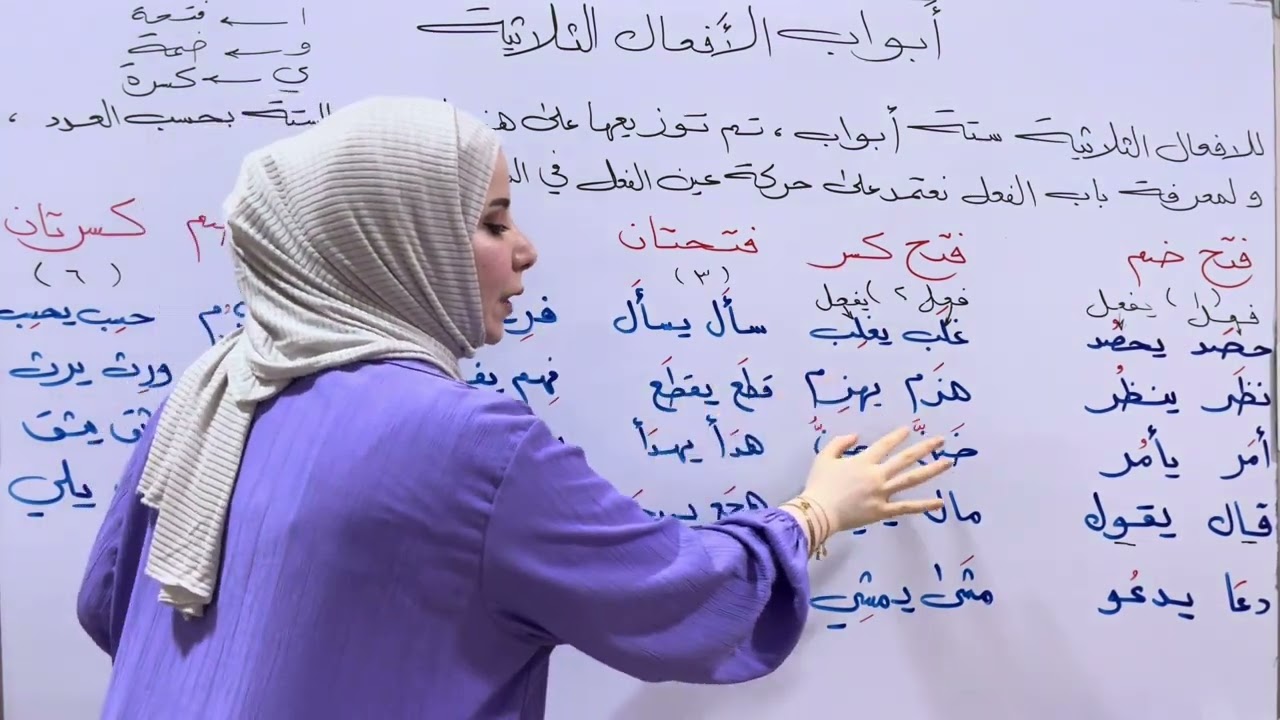 أبواب الأفعال الثلاثية
ا ← فتحة
و ← ضمة
ي ← كسرة
للافعال الثلاثية ستة أبواب ، تم توزيعها على الستة بحسب العدد ،
ولمعرفة باب الفعل نعتمد على حركة عين الفعل في
فتح ضم
فعل (١) يفعل
حصَد يحصُد
نظَر ينظُر
أمَر يأمُر
قال يقول
دعَا يدعُو
فتح كسر
فعل ٢) يفعل
غلَب يغلِب
هزَم يهزِم
مال
مشَى يمشِي
فتحتان
(٣)
سأَل يسأَل
قطَع يقطَع
هدَأ يهدَأ
هجَع
فهِم
كسرتان
(٦)
حسِب يحسِب
ورِث يرث
يثق
يلي